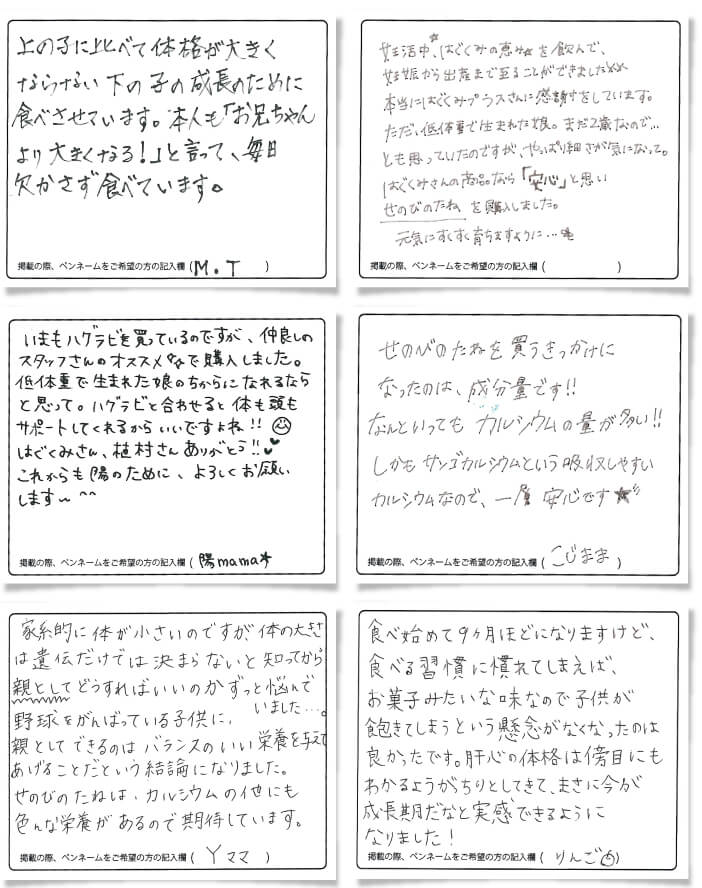 上の子に比べて体格が大きく
ならない下の子の成長のために
食べさせています。本人も「お兄ちゃん
より大きくなる!」と言って、毎日
欠かさず食べています。
掲載の際、ペンネームをご希望の方の記入欄 ( M.T )
妊活中、はぐくみの恵みを飲んで、
妊娠から出産まで至ることができました
本当にはぐくみプラスさんに感謝をしています。
ただ、低体重で生まれた娘。まだ2歳なので…
とも思っていたのですが、やっぱり細さが気になって。
はぐくみさんの商品なら「安心」と思い
せのびのたねを購入しました。
元気にすくすく育ちますように…
掲載の際、ペンネームをご希望の方の記入欄 ( )
いまもハグラビを買っているのですが、仲良しの
スタッフさんのオススメなので購入しました。
低体重で生まれた娘のちからになれるなら
と思って。ハグラビと合わせると体も頭も
サポートしてくれるからいいですよね!!
はぐくみさん、植村さんありがとう!!
これからも陽のために、よろしくお願い
します〜 ^^
掲載の際、ペンネームをご希望の方の記入欄 ( 陽mama★ )
せのびのたねを買うきっかけに
なったのは、成分量です!!
なんといってもカルシウムの量が多い!!
しかもサンゴカルシウムという吸収しやすい
カルシウムなので、一層安心です★
掲載の際、ペンネームをご希望の方の記入欄 ( こじまま )
家系的に体が小さいのですが、体の大きさ
は遺伝だけでは決まらないと知ってから
親としてどうすればいいのかずっと悩んで
いました…。
野球をがんばっている子供に、
親としてできるのはバランスのいい栄養を与えて
あげることだという結論になりました。
せのびのたねは、カルシウムの他にも
色んな栄養があるので期待しています。
掲載の際、ペンネームをご希望の方の記入欄 ( Yママ )
食べ始めて9ヶ月ほどになりますけど、
食べる習慣に慣れてしまえば、
お菓子みたいな味なので子供が
飽きてしまうという懸念がなくなったのは
良かったです。肝心の体格は傍目にも
わかるようがちりとしてきて、まさに今が
成長期だなと実感できるように
なりました!
掲載の際、ペンネームをご希望の方の記入欄 ( りんご )